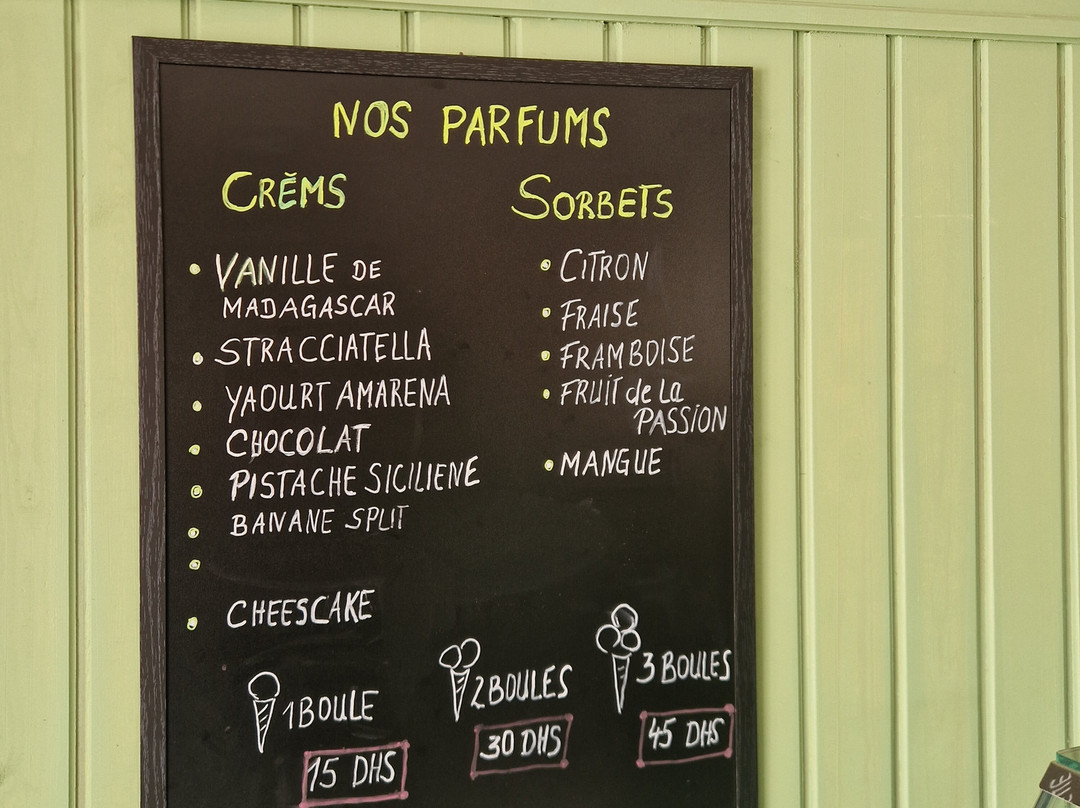 NOS PARFUMS
CRÈMS
VANILLE DE
MADAGASCAR
STRACCIATELLA
YAOURT AMARENA
CHOCOLAT
PISTACHE SICILIENE
BANANE SPLIT
CHEESCAKE
SORBETS
CITRON
FRAISE
FRAMBOISE
FRUIT de La
PASSION
MANGUE
1 BOULE
15 DHS
2 BOULES
30 DHS
3 BOULES
45 DHS